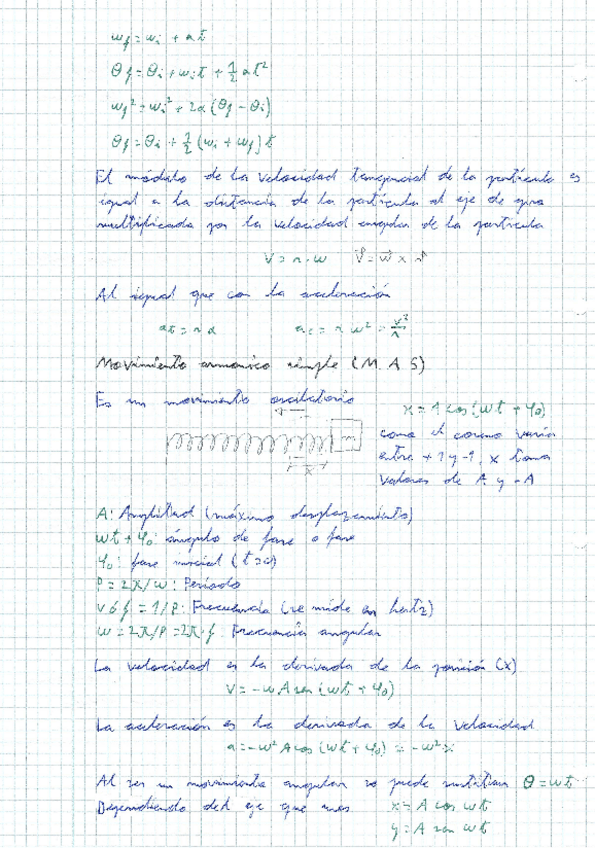 ωf = ωi + αt
θf = θi + ωit + 1/2 αt²
ωf² = ωi² + 2α (θf - θi)
θf = θi + 1/2 (ωi + ωf) t
El módulo de la velocidad tangencial de la partícula es
igual a la distancia de la partícula al eje de giro
multiplicada por la velocidad angular de la partícula
v = r · ω v⃗ = ω⃗ x r⃗
Al igual que con la aceleración
at = r α ac = r ω² = v²/r
Movimiento armonico simple (M.A.S)
Es un movimiento oscilatorio
x = A cos (ωt + φ0)
como el coseno varía
entre +1 y -1, x toma
valores de A y -A
m
x
A: Amplitud (máximo desplazamiento)
ωt + φ0: ángulo de fase o fase
φ0: fase inicial (t=0)
P = 2π/ω: Periodo
ν ó f = 1/P: Frecuencia (se mide en hertz)
ω = 2π/P = 2π·f: Frecuencia angular
La velocidad es la derivada de la posición (x)
v = -ωA sen (ωt + φ0)
La aceleración es la derivada de la velocidad
a = -ω² A cos (ωt + φ0) = -ω² x
Al ser un movimiento angular se puede sustituir θ = ωt
Dependiendo del eje que uses x = A cos ωt
y = A sen ωt